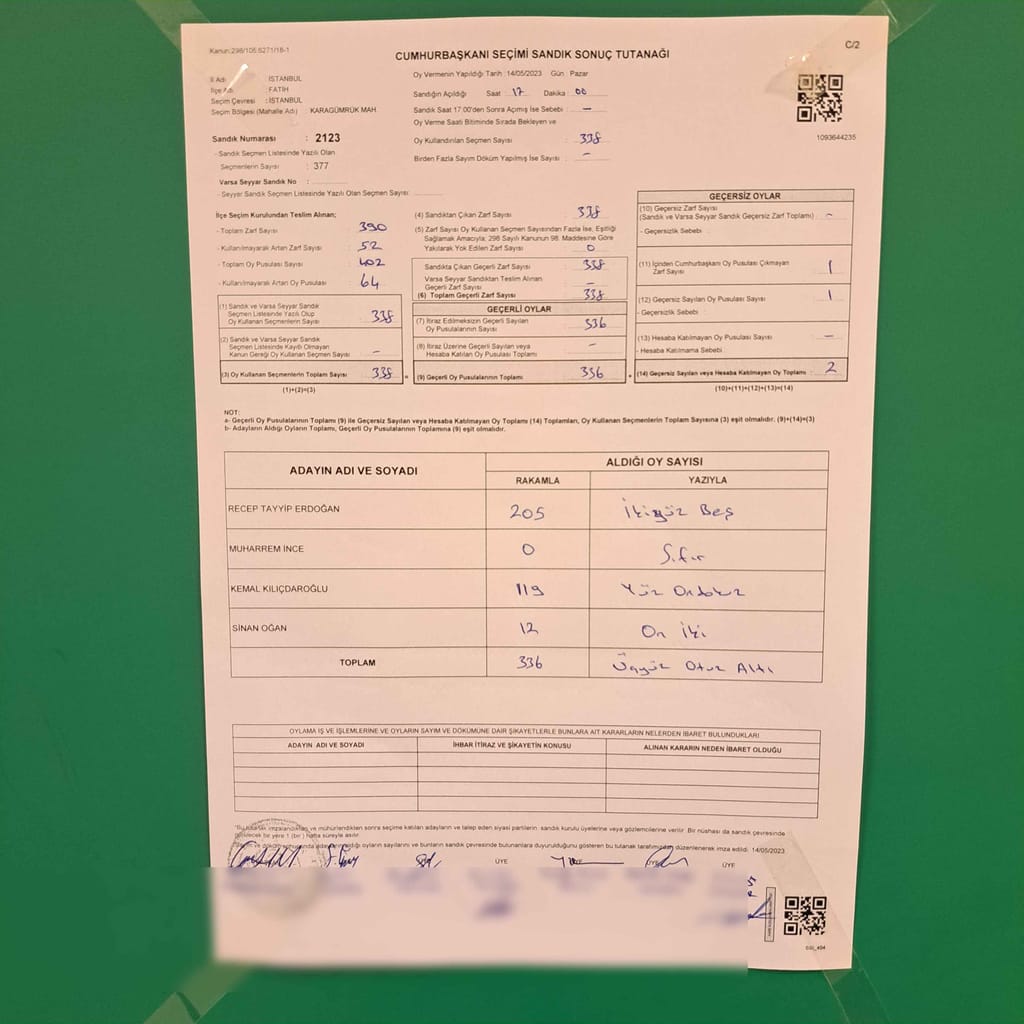 Kanun:298/105.6271/18-1
C/2
CUMHURBAŞKANI SEÇİMİ SANDIK SONUÇ TUTANAĞI
İl Adı : İSTANBUL
İlçe Adı : FATİH
Seçim Çevresi : İSTANBUL
Seçim Bölgesi (Mahalle Adı) : KARAGÜMRÜK MAH
Sandık Numarası : 2123
- Sandık Seçmen Listesinde Yazılı Olan
Seçmenlerin Sayısı : 377
Varsa Seyyar Sandık No :
- Seyyar Sandık Seçmen Listesinde Yazılı Olan Seçmen Sayısı:
Oy Vermenin Yapıldığı Tarih :14/05/2023 Gün : Pazar
Sandığın Açıldığı Saat : 17 Dakika : 00
Sandık Saat 17.00'den Sonra Açımış İse Sebebi : -
Oy Verme Saati Bitiminde Sırada Bekleyen ve
Oy Kullandırılan Seçmen Sayısı : 338
Birden Fazla Sayım Döküm Yapılmış İse Sayısı : -
1093644235
İlçe Seçim Kurulundan Teslim Alınan;
- Toplam Zarf Sayısı : 390
- Kullanılmayarak Artan Zarf Sayısı : 52
- Toplam Oy Pusulası Sayısı : 402
- Kullanılmayarak Artan Oy Pusulası : 64
(1) Sandık ve Varsa Seyyar Sandık
Seçmen Listesinde Yazılı Olup
Oy Kullanan Seçmenlerin Sayısı : 338
(2) Sandık ve Varsa Seyyar Sandık
Seçmen Listesinde Kayıtlı Olmayan
Kanun Gereği Oy Kullanan Seçmen Sayısı : -
(3) Oy Kullanan Seçmenlerin Toplam Sayısı : 338 =
(1)+(2)=(3)
(4) Sandıktan Çıkan Zarf Sayısı : 338
(5) Zarf Sayısı Oy Kullanan Seçmen Sayısından Fazla İse, Eşitliği
Sağlamak Amacıyla; 298 Sayılı Kanunun 98. Maddesine Göre
Yakılarak Yok Edilen Zarf Sayısı : 0
Sandıkta Çıkan Geçerli Zarf Sayısı : 338
Varsa Seyyar Sandıktan Teslim Alınan
Geçerli Zarf Sayısı : -
(6) Toplam Geçerli Zarf Sayısı : 338
GEÇERLİ OYLAR
(7) İtiraz Edilmeksizin Geçerli Sayılan
Oy Pusulalarının Sayısı : 336
(8) İtiraz Üzerine Geçerli Sayılan veya
Hesaba Katılan Oy Pusulaları Toplamı : -
(9) Geçerli Oy Pusulalarının Toplamı : 336 +
GEÇERSİZ OYLAR
(10) Geçersiz Zarf Sayısı
(Sandık ve Varsa Seyyar Sandık Geçersiz Zarf Toplamı) : -
- Geçersizlik Sebebi :
(11) İçinden Cumhurbaşkanı Oy Pusulası Çıkmayan
Zarf Sayısı : 1
(12) Geçersiz Sayılan Oy Pusulası Sayısı : 1
- Geçersizlik Sebebi :
(13) Hesaba Katılmayan Oy Pusulası Sayısı : -
- Hesaba Katılmama Sebebi :
(14) Geçersiz Sayılan veya Hesaba Katılmayan Oy Toplamı : 2
(10)+(11)+(12)+(13)=(14)
NOT:
a- Geçerli Oy Pusulalarının Toplamı (9) ile Geçersiz Sayılan veya Hesaba Katılmayan Oy Toplamı (14) Toplamları, Oy Kullanan Seçmenlerin Toplam Sayısına (3) eşit olmalıdır. (9)+(14)=(3)
b- Adayların Aldığı Oyların Toplamı, Geçerli Oy Pusulalarının Toplamına (9) eşit olmalıdır.
ADAYIN ADI VE SOYADI
ALDIĞI OY SAYISI
RAKAMLA YAZIYLA
RECEP TAYYİP ERDOĞAN 205 İkiyüz Beş
MUHARREM İNCE 0 Sıfır
KEMAL KILIÇDAROĞLU 119 Yüz Ondokuz
SİNAN OĞAN 12 On İki
TOPLAM 336 Üçyüz Otuz Altı
OYLAMA İŞ VE İŞLEMLERİNE VE OYLARIN SAYIM VE DÖKÜMÜNE DAİR ŞİKAYETLERLE BUNLARA AİT KARARLARIN NELERDEN İBARET BULUNDUKLARI
ADAYIN ADI VE SOYADI İHBAR İTİRAZ VE ŞİKAYETİN KONUSU ALINAN KARARIN NEDEN İBARET OLDUĞU
*Bu tutanak imzalandıktan ve mühürlendikten sonra seçime katılan adayların ve talep eden siyasi partilerin; sandık kurulu üyelerine veya gözlemcilerine verilir. Bir nüshası da sandık çevresinde
görülecek bir yere 1 (bir) hafta süreyle asılır.
dökümü adayların aldığı oyların sayılarını ve bunların sandık çevresinde bulunanlara duyurulduğunu gösteren bu tutanak tarafımızdan düzenlenerek imza edildi. 14/05/2023
ÜYE ÜYE ÜYE ÜYE